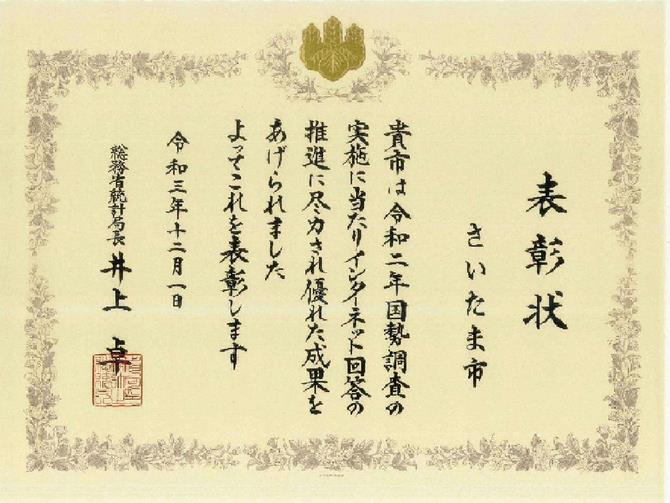 表彰状
さいたま市
貴市は令和二年国勢調査の
実施に当たりインターネット回答の
推進に尽力され優れた成果を
あげられました
よってこれを表彰します
令和三年十二月一日
総務省統計局長 井上 卓